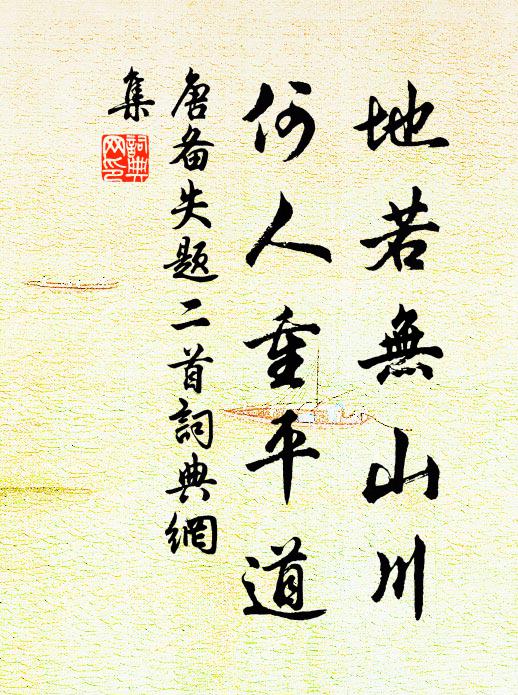 地若無山川
何人重平道
唐备失题二首詞典網
集
詞典網印